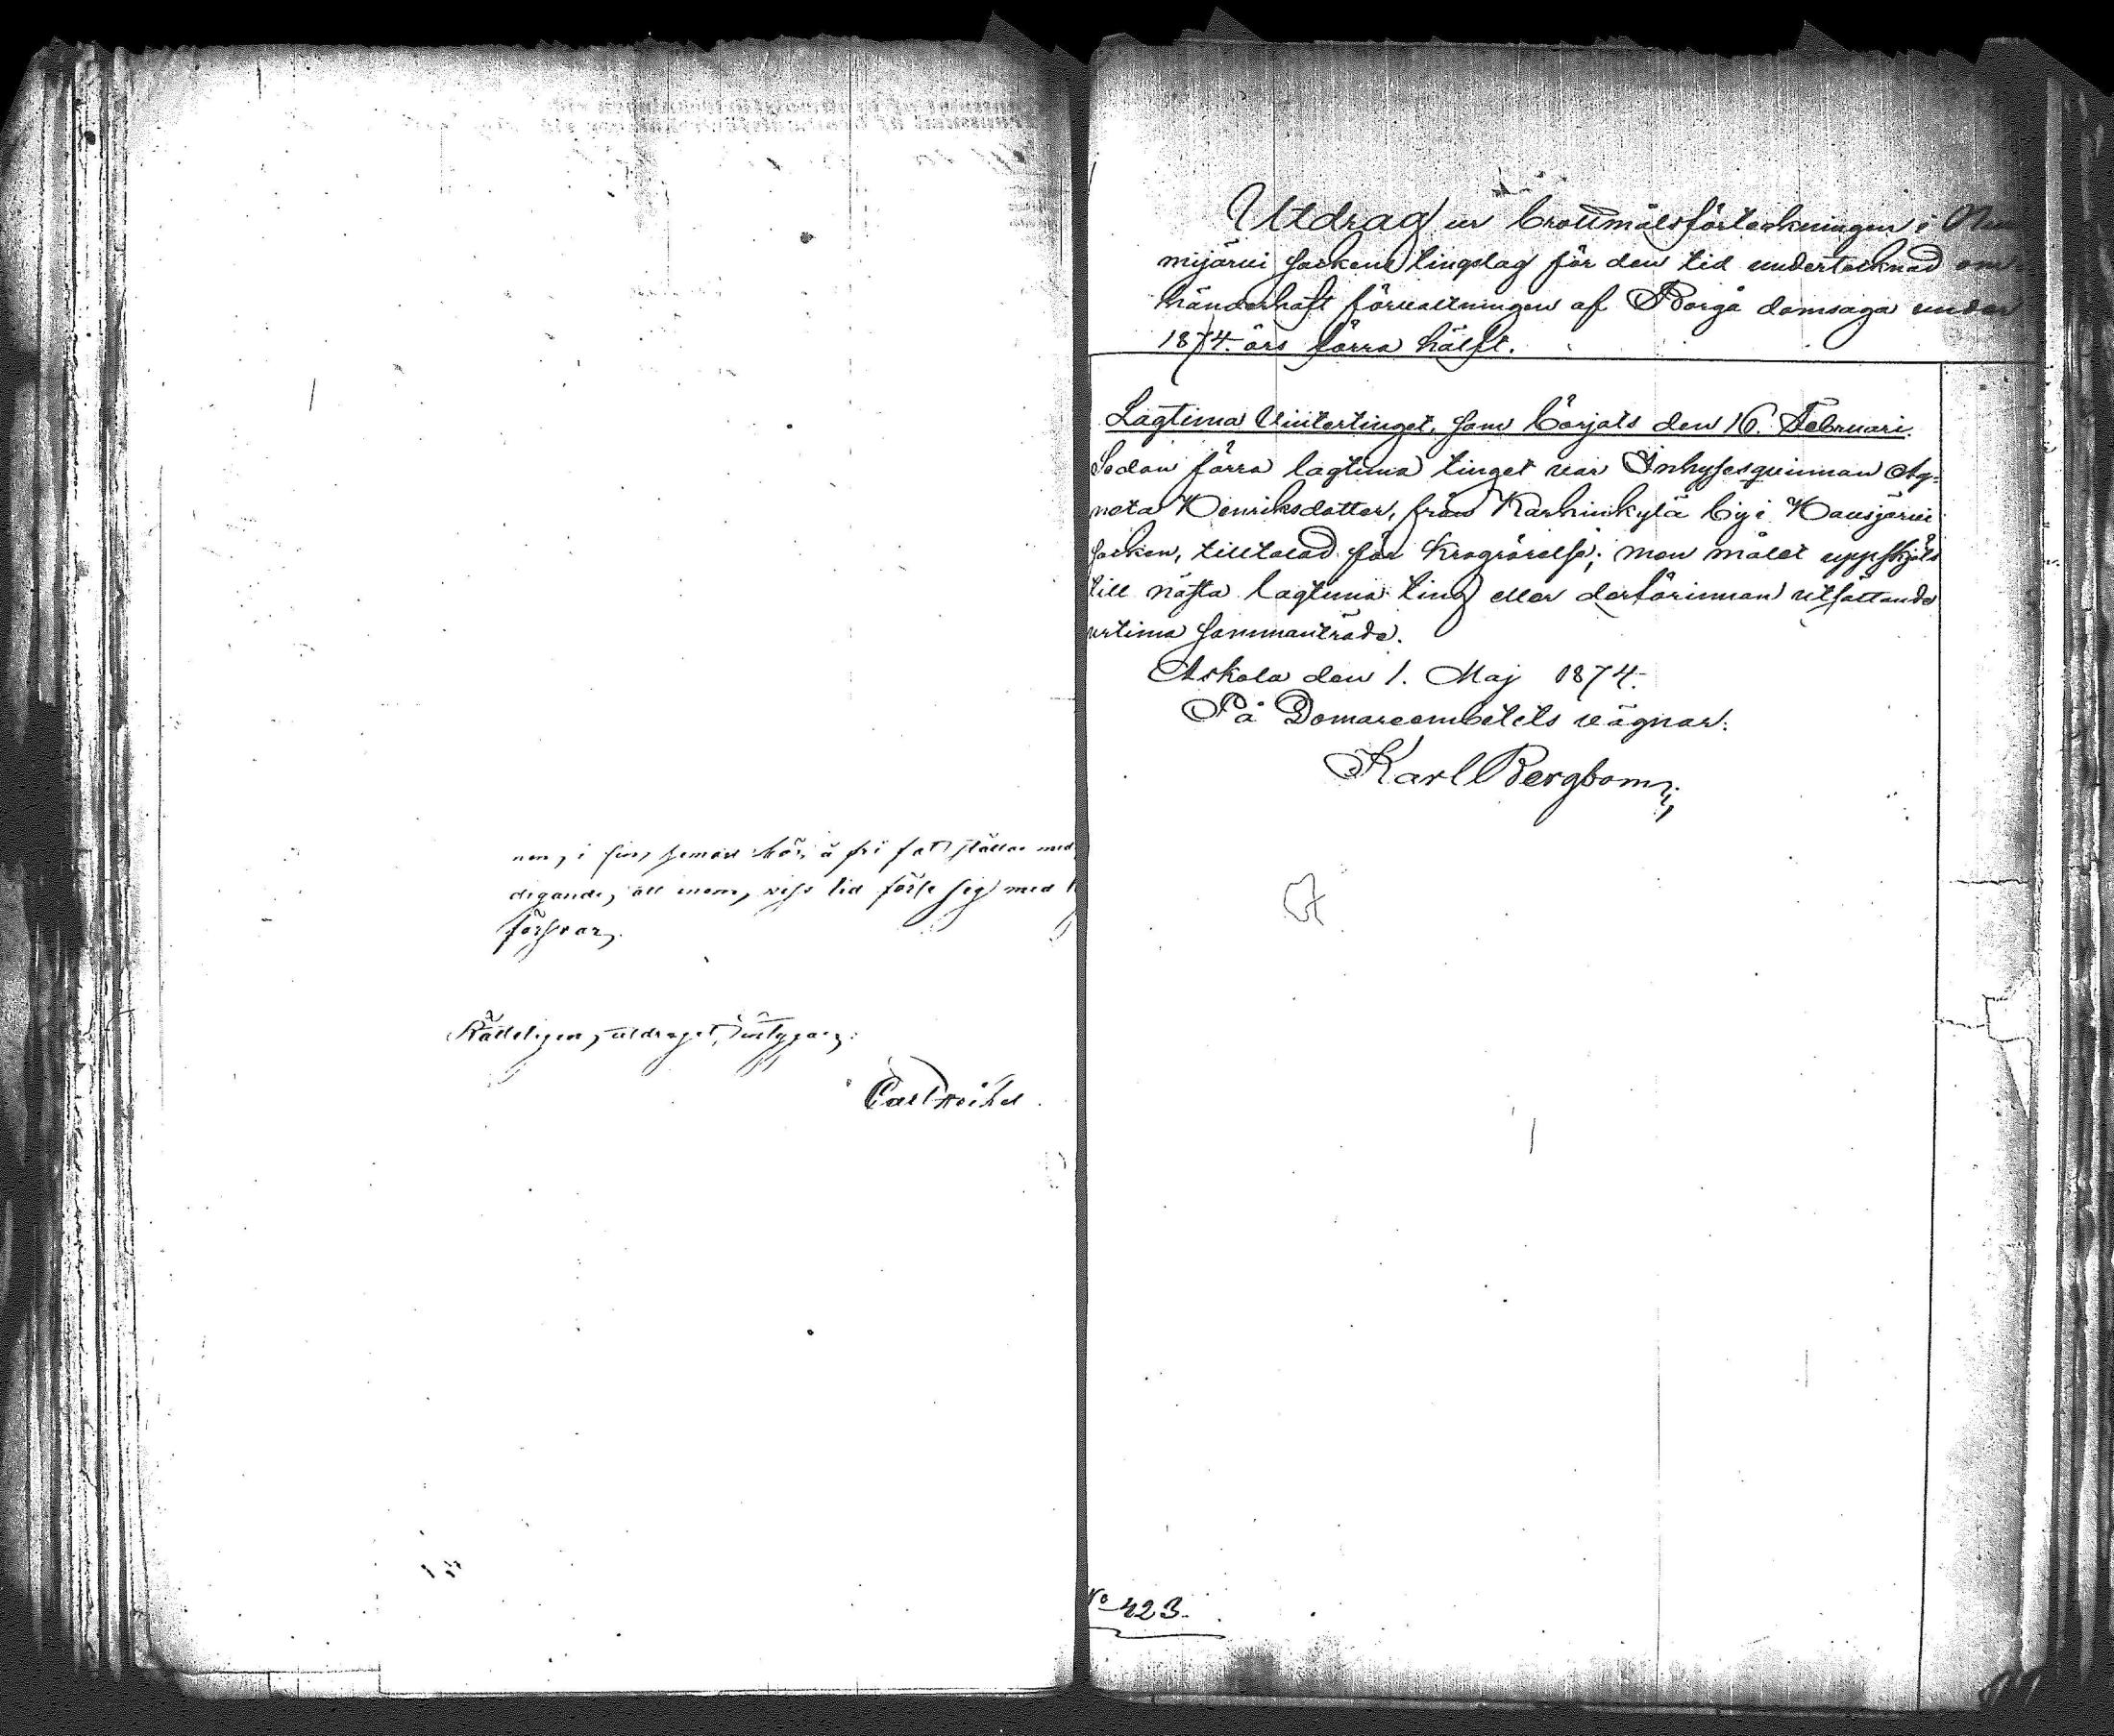 nen, i sin hemort bör, å fri fot ställas med
digande, att inom, viss tid förse sig med
försvar.
Rätteligen, utdraget, intygar:
Carl
Utdrag ur brottmålsförteckningen i Nur
mijärvi sockens tingslag för den tid undertecknad om
händerhaft förvaltningen af Borgå domsaga under
1874. års förra hälft.
Lagtima Vintertinget, som börjats den 16. Februari.
Sedan förra lagtima tinget var Inhysesqvinnan Ag-
neta Henriksdotter, från Karhinkylä by i Hausjärvi
socken, tilltalad för krogrörelse; men målet uppskjöts
till nästa lagtima ting eller derförinnan utsättande
urtima sammanträde.
Askola den 1. Maj 1874.
På Domareembetets vägnar:
Karl Bergbom
No 423.